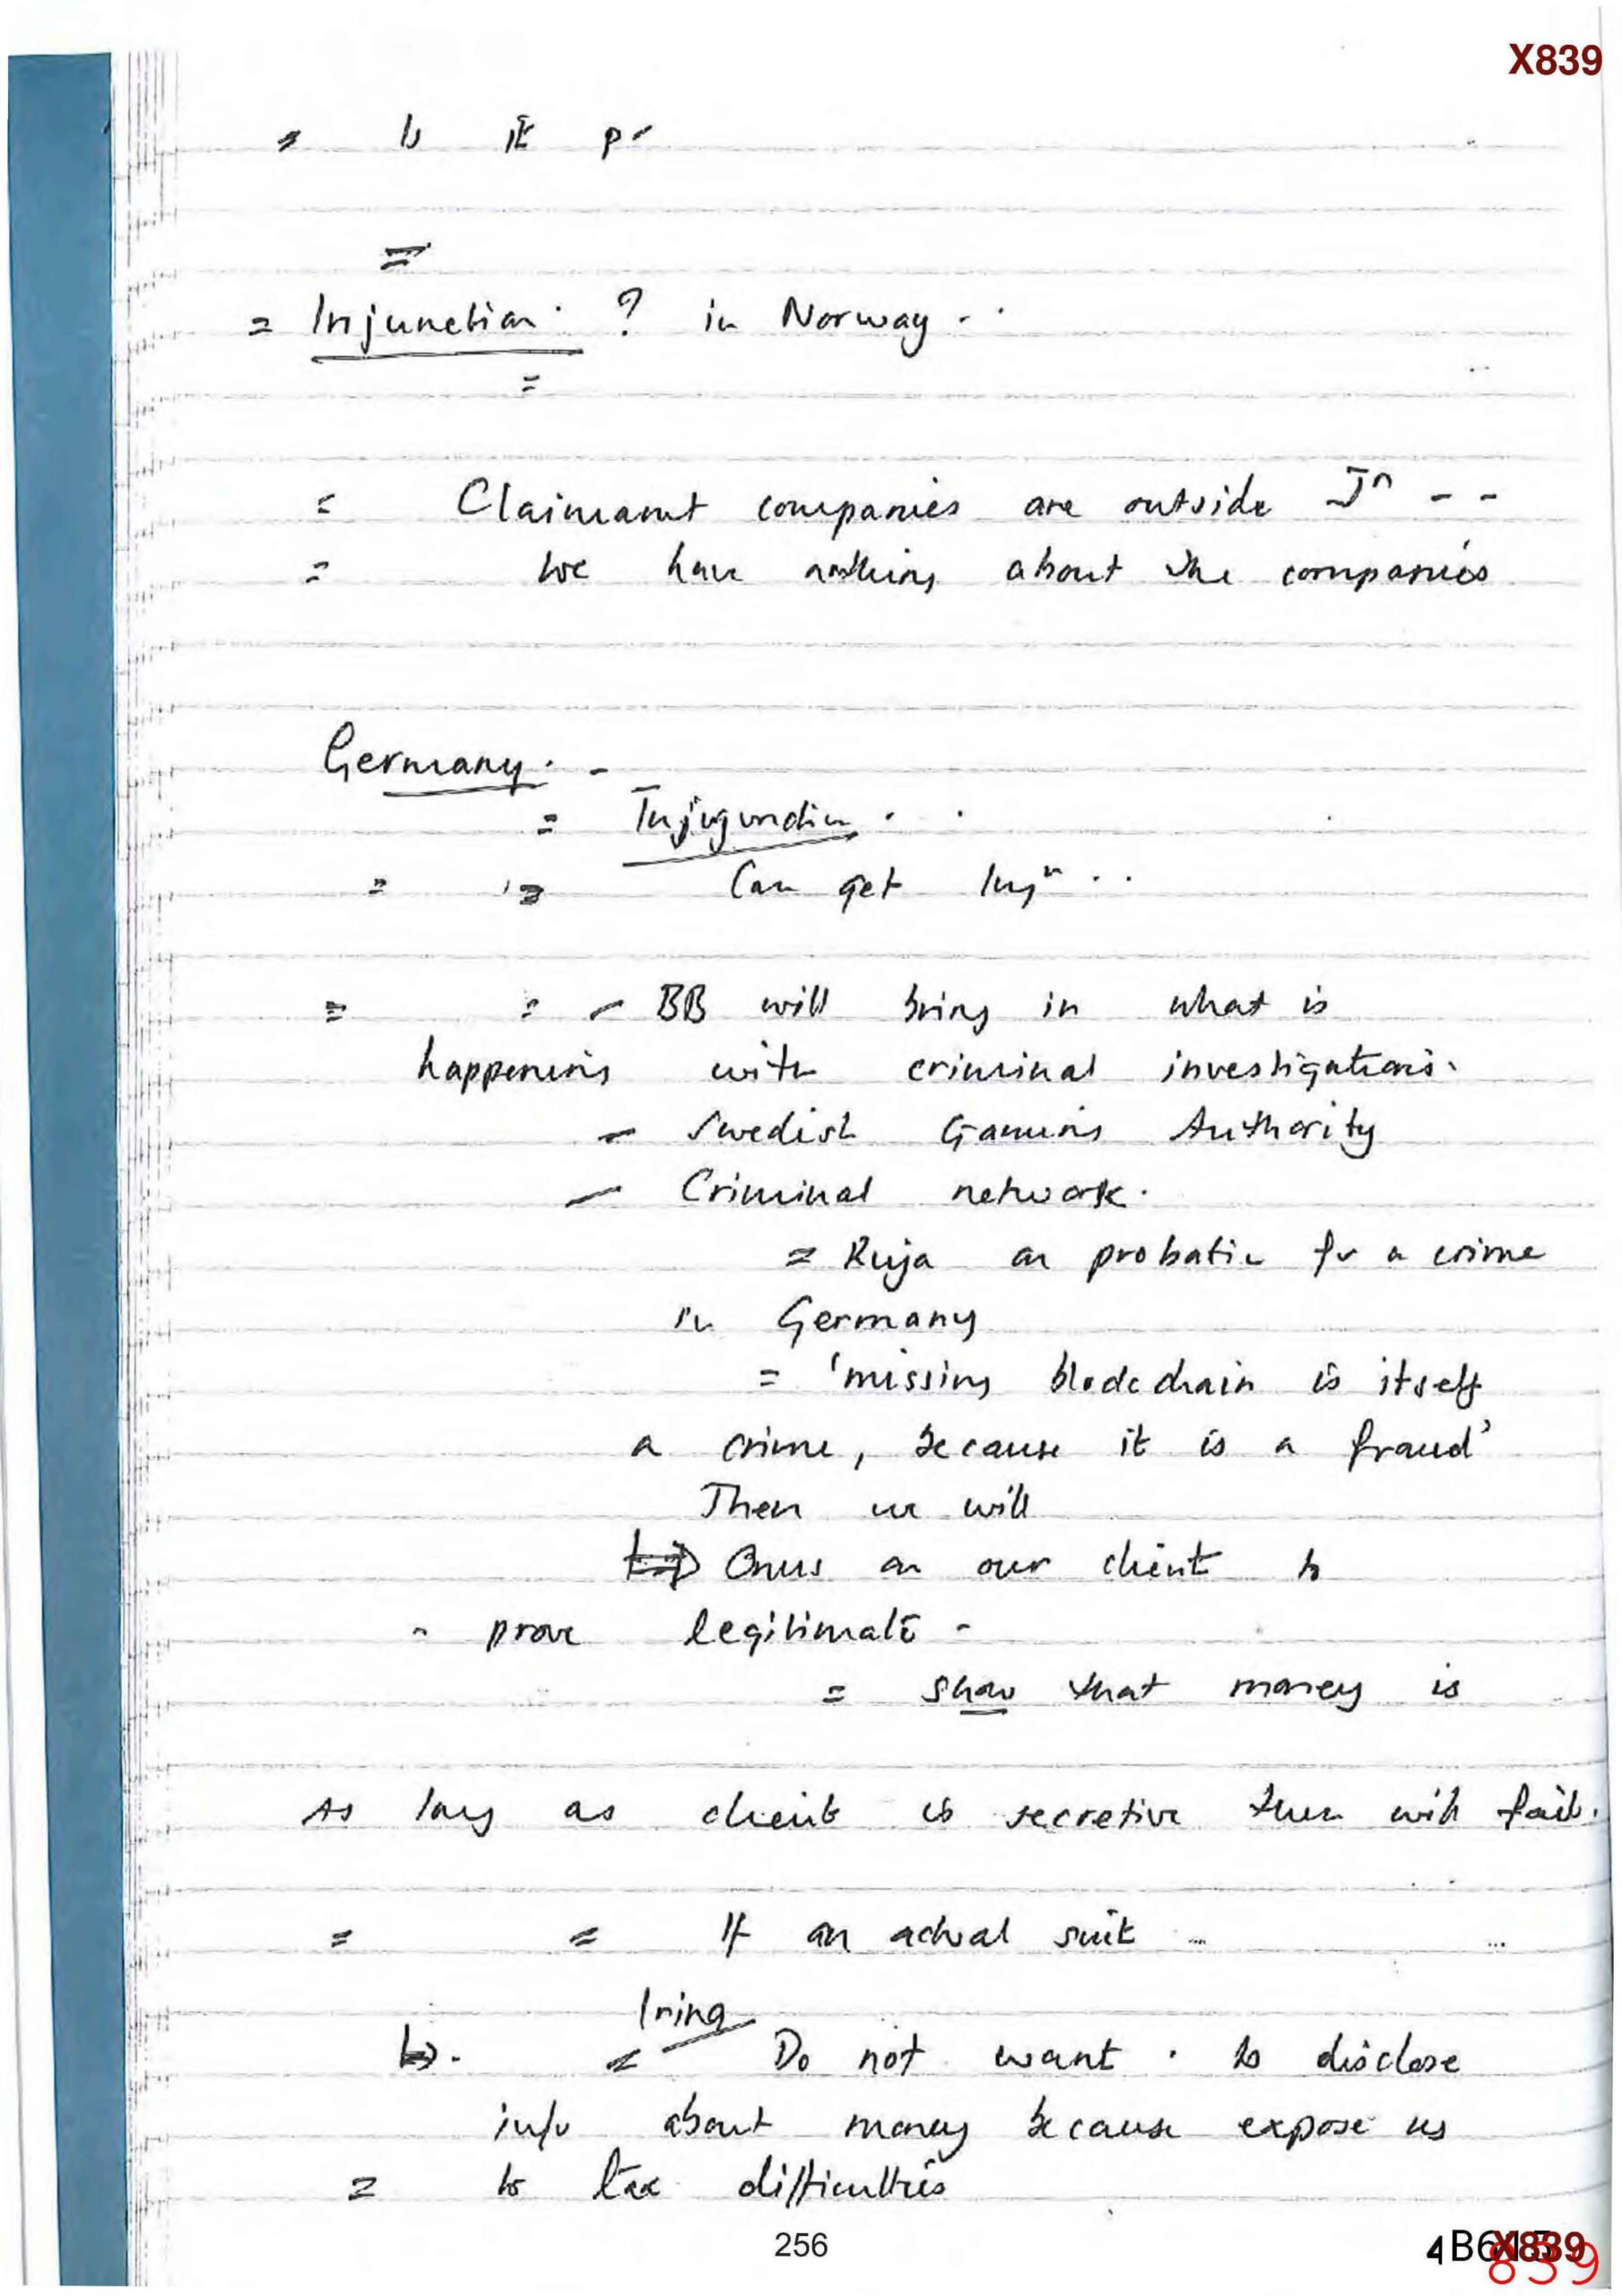 X839
= Injunction ? in Norway
= Claimant companies are outside Jn - -
= We have nothing about the companies
Germany. -
=
= Can get Injn ..
= - BB will bring in what is
happening with criminal investigations.
- Swedish Gaming Authority
- Criminal network.
= Ruja on probatin for a crime
in Germany
= 'missing blockchain is itself
a crime, because it is a fraud'
Then we will
Onus on our client to
prove legitimate -
= show that money is
As long as client is secretive then will fail.
= = If an actual suit ...
Irina
= Do not want to disclose
info about money because expose us
= to tax difficulties
256
X839
839